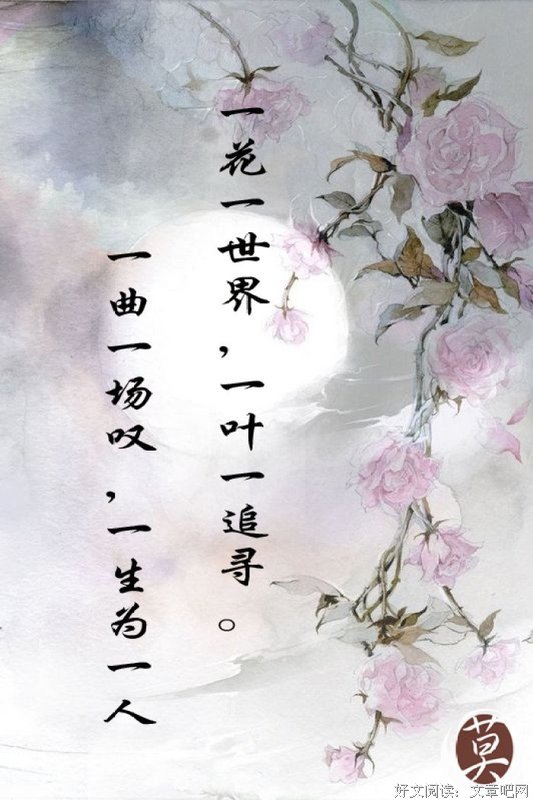 一花一世界，一叶一追寻。
一曲一场叹，一生为一人
莫
好文阅读：文章吧网